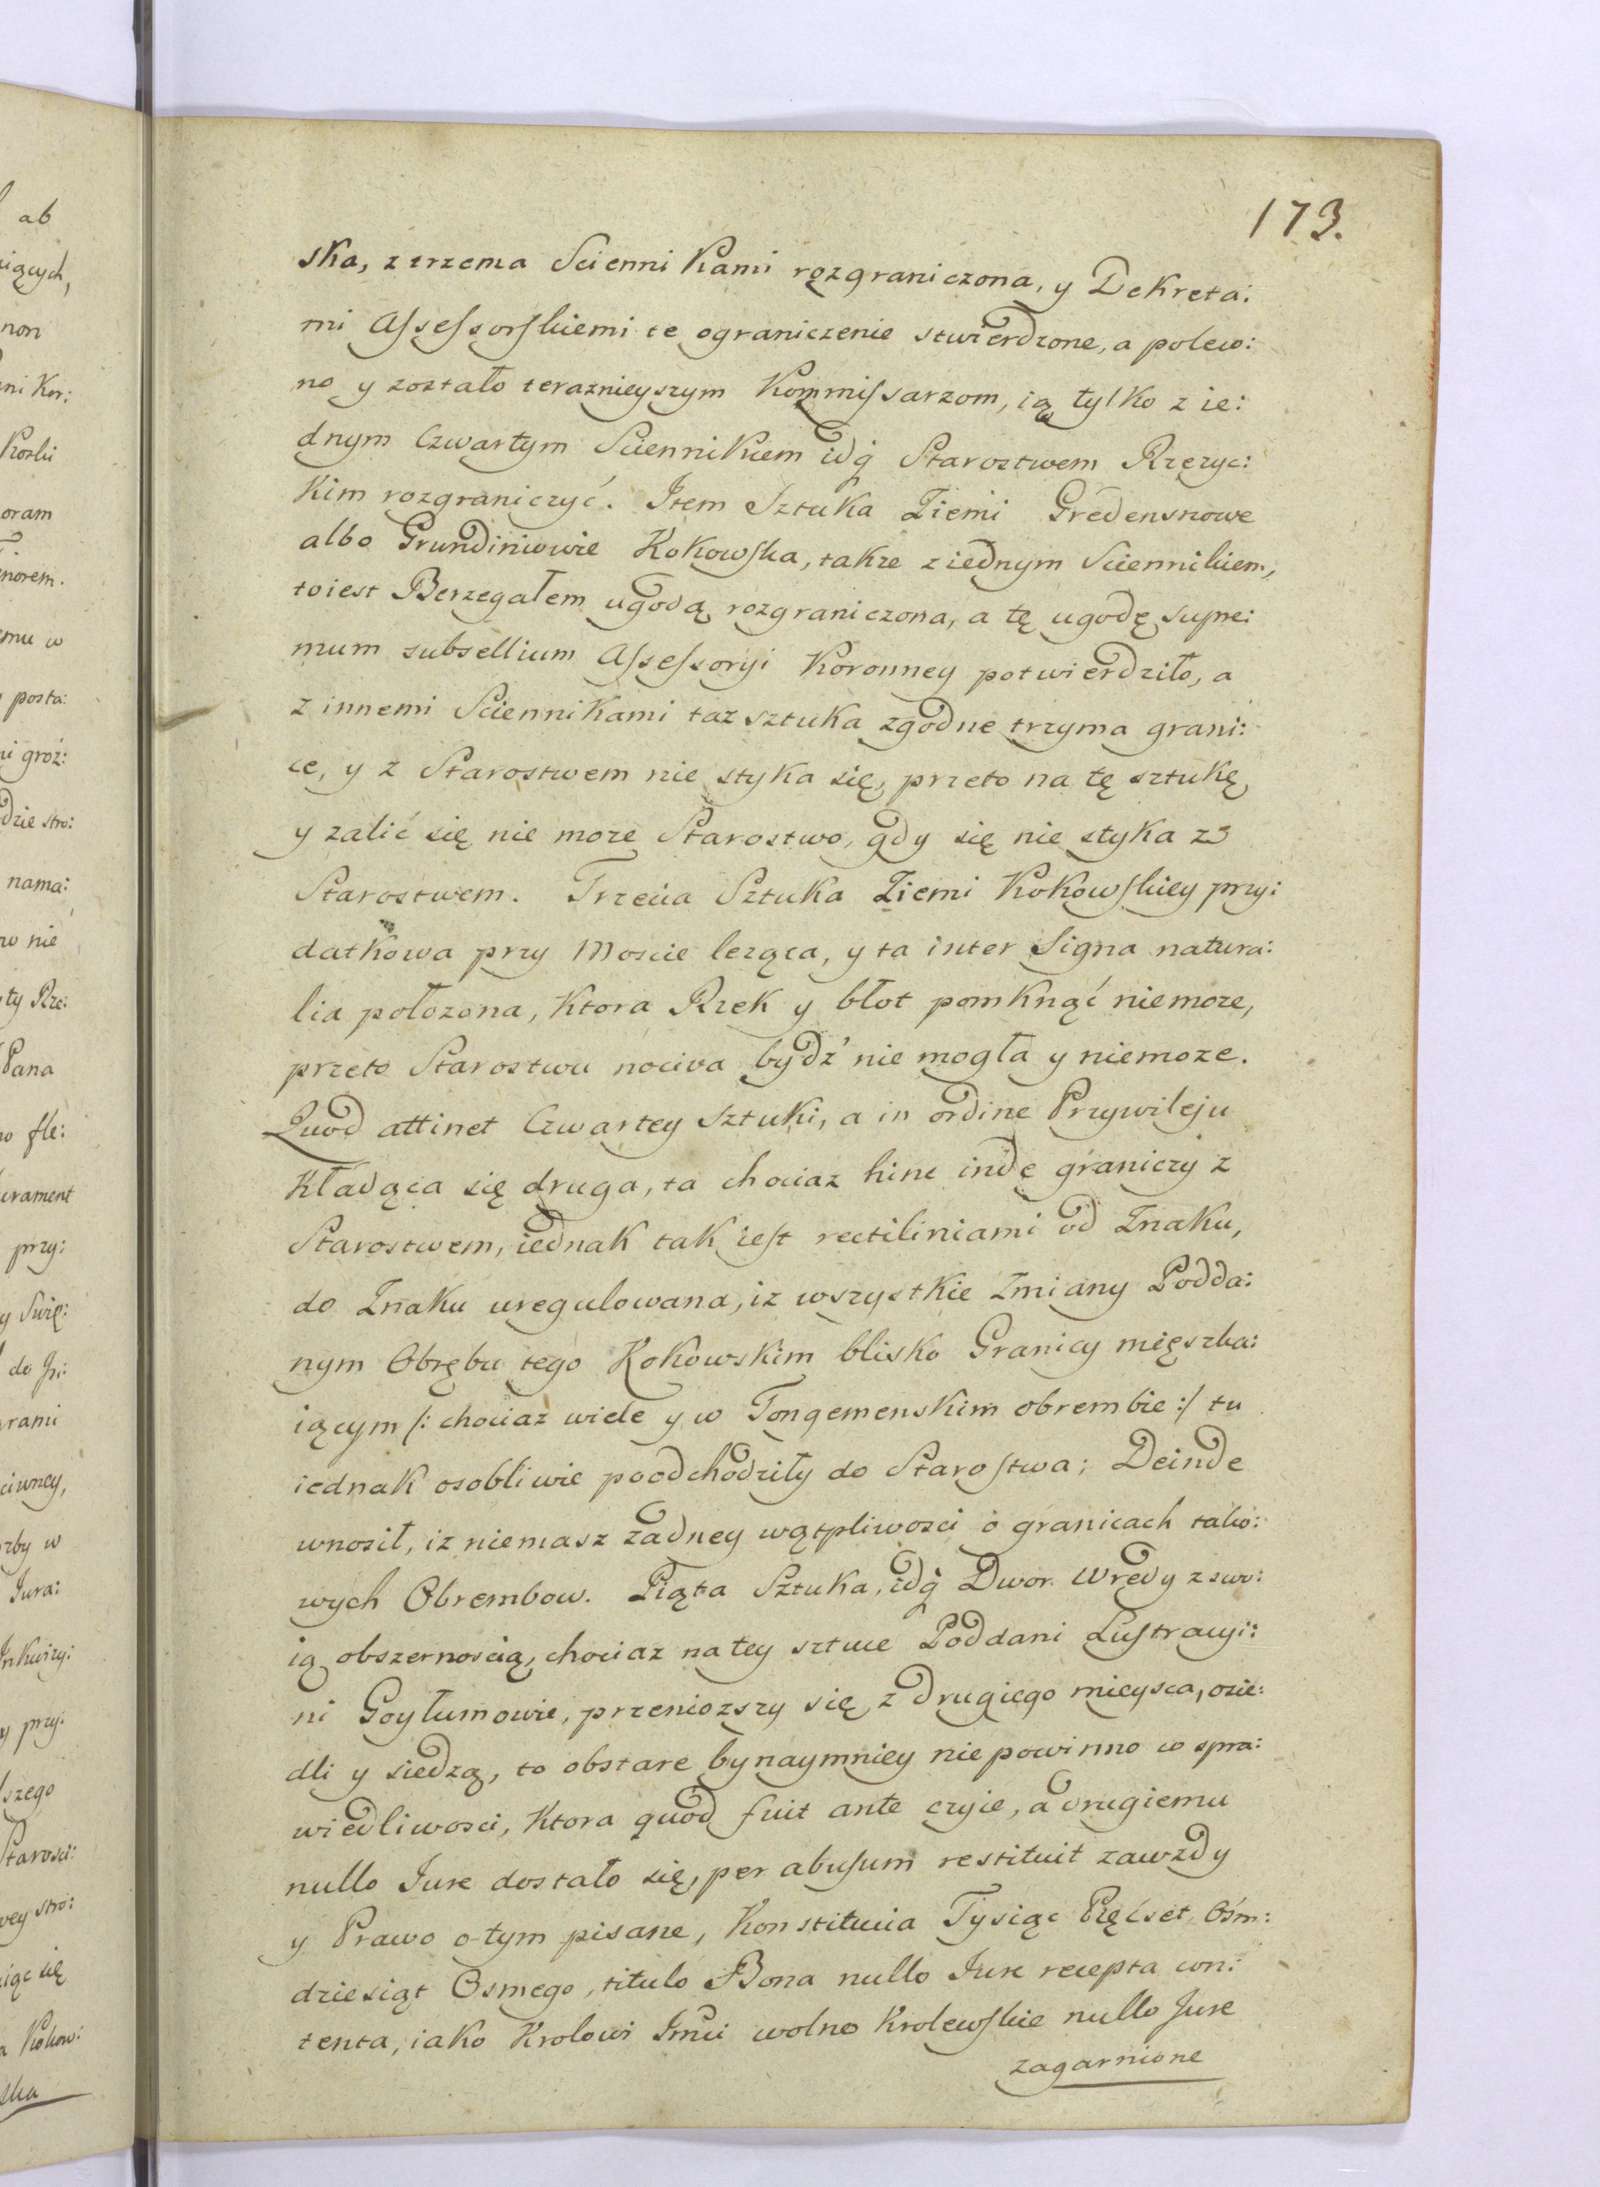 173.
ska, z trzema Sciennikami rozgraniczona, y Dekreta:
mi Assessorskiemi te ograniczenie stwierdzone, a polew:
no y zostało teraznieyszym Kommissarzom, ią tylko z ie:
dnym Czwartym Sciennikiem idq Starostwem Rzezyc:
kim rozgraniczyć. Item Sztuka Ziemi Gredensnowe
albo Grundiniowie Kokowska, takze z iednym Sciennikiem,
toiest Berzegałem ugodą rozgraniczona, a tę ugodę supre:
mum subsellium Assessoryi Koronney potwierdziło, a
z innemi Sciennikami taz sztuka zgodne trzyma grani:
ce, y z Starostwem nie styka się, przeto na tę sztukę
y zalić się nie moze Starostwo, gdy się nie styka z
Starostwem. Trzecia Sztuka Ziemi Kokowskiey przy:
datkowa przy Moscie leząca, y ta inter Signa natura:
lia połozona, Ktora Rzek y błot pomknąć niemoze,
przeto Starostwu nociva bydź nie mogła y niemoze.
Quod attinet Czwartey Sztuki, a in ordine Przywileju
Kładąca się druga, ta chociaz hinc inde graniczy z
Starostwem, iednak tak iest rectiliniami od Znaku,
do Znaku uregulowana, iz wszystkie Zmiany Podda:
nym Obrębu tego Kokowskim blisko Granicy mięszka:
iącym /: chociaz wiele y w Tongemenskim obrembie :/ tu
iednak osobliwie poodchodziły do Starostwa; Deinde
wnosił, iz niemasz zadney wątpliwosci o granicach tako:
wych Obrembow. Piąta Sztuka, idq Dwor Wredy z swo:
ią obszernoscią, chociaz na tey sztuce Poddani Lustracyi:
ni Goyłumowie, przeniozszy się z drugiego mieysca, osie:
dli y siedzą, to obstare bynaymniey nie powinno w spra:
wiedliwosci, Ktora quod fuit ante czyie, a drugiemu
nullo Jure dostało się, per abusum restituit zawzdy
y Prawo o tym pisane, Konstitucia Tysiąc Pięćset Ośm:
dziesiąt Osmego, titulo Bona nullo Jure recepta con:
tenta, iako Krolowi Jmci wolno Krolewskie nullo Jure
zagarnione